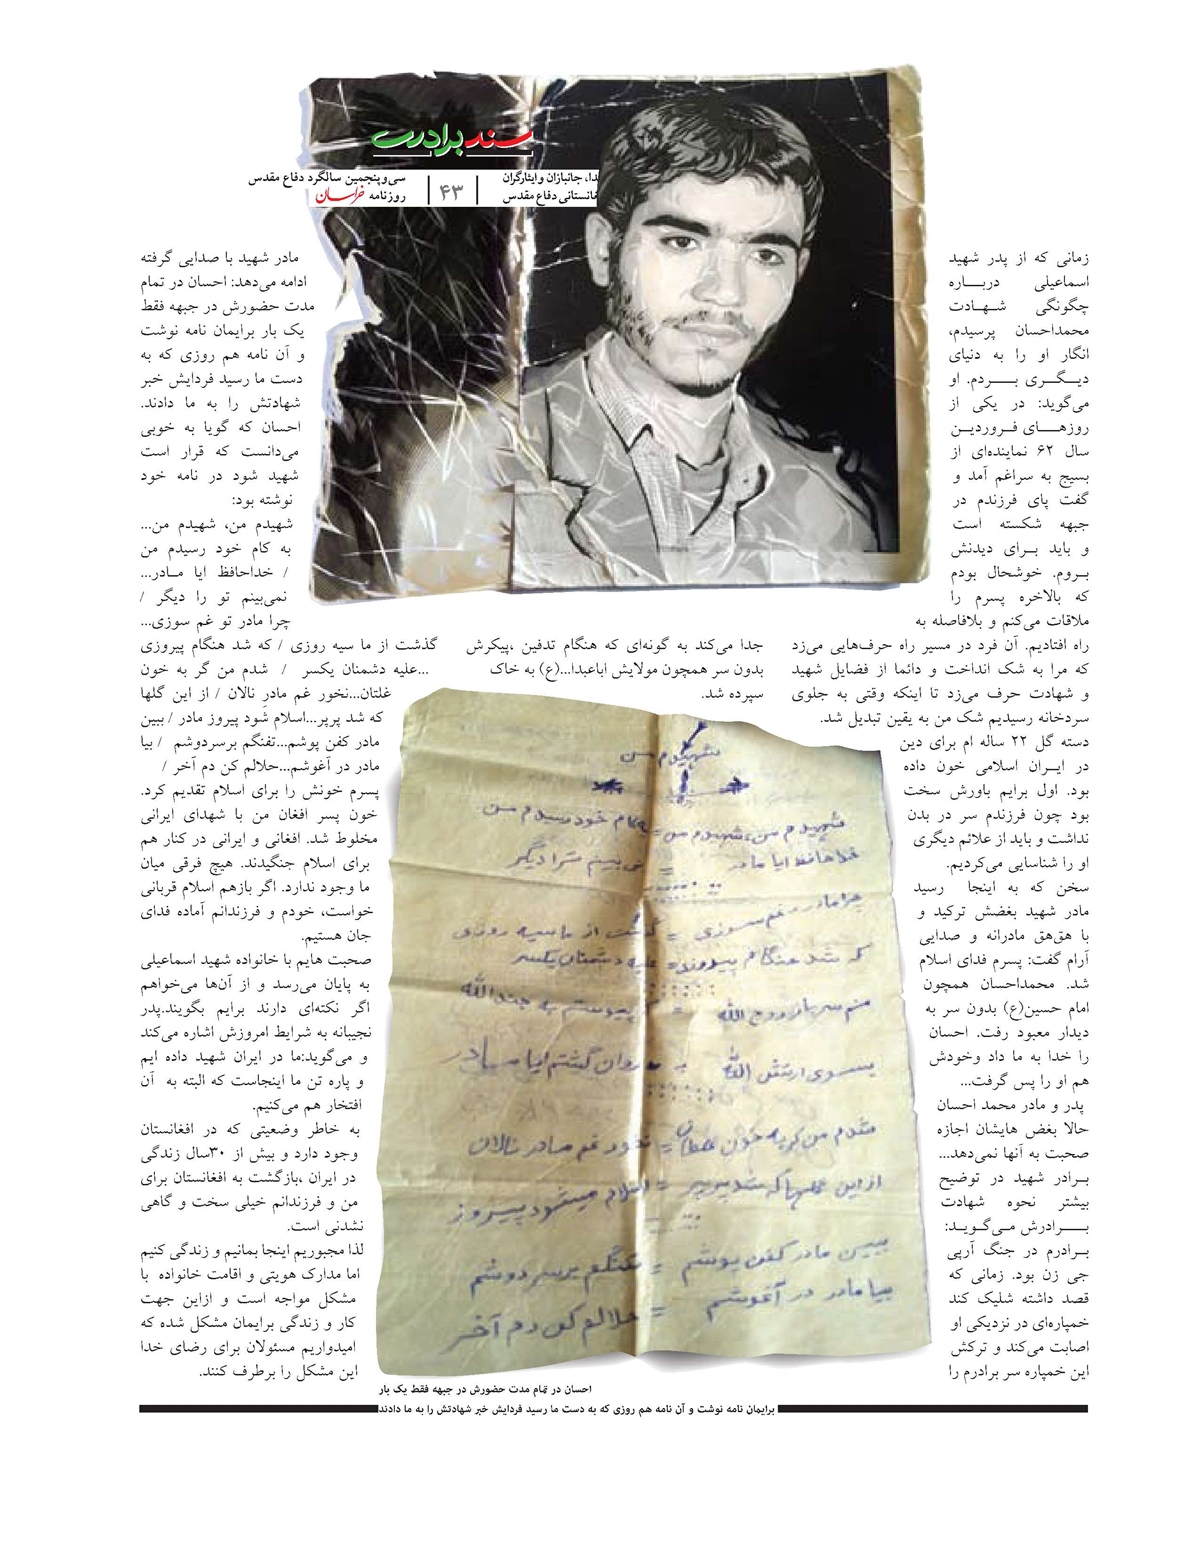 سند برادری
شهدا، جانبازان و ایثارگران
افغانستانی دفاع مقدس
۴۳
سی‌وپنجمین سالگرد دفاع مقدس
روزنامه خراسان
زمانی که از پدر شهید
اسماعیلی دربـــاره
چگونگی شـــهـــادت
محمداحسان پرسیدم،
انگار او را به دنیای
دیـــگـــری بـــــردم. او
می‌گوید: در یکی از
روزهــــای فـروردیـن
سال ۶۲ نماینده‌ای از
بسیج به سراغم آمد و
گفت پای فرزندم در
جبهه شکسته است
و باید بــرای دیدنش
بــروم. خوشحال بودم
که بالاخره پسرم را
ملاقات می‌کنم و بلافاصله به
راه افتادیم. آن فرد در مسیر راه حرف‌هایی می‌زد
که مرا به شک انداخت و دائما از فضایل شهید
و شهادت حرف می‌زد تا اینکه وقتی به جلوی
سردخانه رسیدیم شک من به یقین تبدیل شد.
دسته گل ۲۲ ساله ام برای دین
در ایــران اسلامی خون داده
بود. اول برایم باورش سخت
بود چون فرزندم سر در بدن
نداشت و باید از علائم دیگری
او را شناسایی می‌کردیم.
سخن که به اینجا رسید
مادر شهید بغضش ترکید و
با هق‌هق مادرانه و صدایی
آرام گفت: پسرم فدای اسلام
شد. محمداحسان همچون
امام حسین(ع) بدون سر به
دیدار معبود رفت. احسان
را خدا به ما داد وخودش
هم او را پس گرفت...
پدر و مادر محمد احسان
حالا بغض هایشان اجازه
صحبت به آنها نمی‌دهد...
بـرادر شهید در توضیح
بیشتر نحوه شهادت
بـــــرادرش مـی‌گـویـد:
بـرادرم در جنگ آرپی
جی زن بود. زمانی که
قصد داشته شلیک کند
خمپاره‌ای در نزدیکی او
اصابت می‌کند و ترکش
این خمپاره سر برادرم را
جدا می‌کند به گونه‌ای که هنگام تدفین ،پیکرش
بدون سر همچون مولایش اباعبدا...(ع) به خاک
سپرده شد.
مادر شهید با صدایی گرفته
ادامه می‌دهد: احسان در تمام
مدت حضورش در جبهه فقط
یک بار برایمان نامه نوشت
و آن نامه هم روزی که به
دست ما رسید فردایش خبر
شهادتش را به ما دادند.
احسان که گویا به خوبی
می‌دانست که قرار است
شهید شود در نامه خود
نوشته بود:
شهیدم من، شهیدم من...
به کام خود رسیدم من
/ خداحافظ ایا مــادر...
نمی‌بینم تو را دیگر /
چرا مادر تو غم سوزی...
گذشت از ما سیه روزی / که شد هنگام پیروزی
...علیه دشمنان یکسر / شدم من گر به خون
غلتان...نخور غم مادر نالان / از این گلها
که شد پرپر...اسلام شود پیروز مادر / ببین
مادر کفن پوشم...تفنگم برسردوشم / بیا
مادر در آغوشم...حلالم کن دم آخر /
پسرم خونش را برای اسلام تقدیم کرد.
خون پسر افغان من با شهدای ایرانی
مخلوط شد. افغانی و ایرانی در کنار هم
برای اسلام جنگیدند. هیچ فرقی میان
ما وجود ندارد. اگر بازهم اسلام قربانی
خواست، خودم و فرزندانم آماده فدای
جان هستیم.
صحبت هایم با خانواده شهید اسماعیلی
به پایان می‌رسد و از آن‌ها می‌خواهم
اگر نکته‌ای دارند برایم بگویند.پدر
نجیبانه به شرایط امروزش اشاره می‌کند
و می‌گوید:ما در ایران شهید داده ایم
و پاره تن ما اینجاست که البته به آن
افتخار هم می‌کنیم.
به خاطر وضعیتی که در افغانستان
وجود دارد و بیش از ۳۰سال زندگی
در ایران ،بازگشت به افغانستان برای
من و فرزندانم خیلی سخت و گاهی
نشدنی است.
لذا مجبوریم اینجا بمانیم و زندگی کنیم
اما مدارک هویتی و اقامت خانواده با
مشکل مواجه است و ازاین جهت
کار و زندگی برایمان مشکل شده که
امیدواریم مسئولان برای رضای خدا
این مشکل را برطرف کنند.
شهیدم من
شهیدم من، شهیدم من = بکام خود رسیدم من
خداحافظ ایا مادر = نمی بینم ترا دیگر
چرا مادر غم سوزی = گذشت از ما سیه روزی
که شد هنگام پیروزی = علیه دشمنان یکسر
منم سرباز روح الله = پیوستم به جندالله
بسوی ارتش الله = روان گشتم ایا مادر
شدم من گر به خون غلطان = نخور غم مادر نالان
از این گلها که شد پرپر = اسلام میشود پیروز
ببین مادر کفن پوشم = تفنگم برسر دوشم
بیا مادر در آغوشم = حلالم کن دم آخر
احسان در تمام مدت حضورش در جبهه فقط یک بار
برایمان نامه نوشت و آن نامه هم روزی که به دست ما رسید فردایش خبر شهادتش را به ما دادند